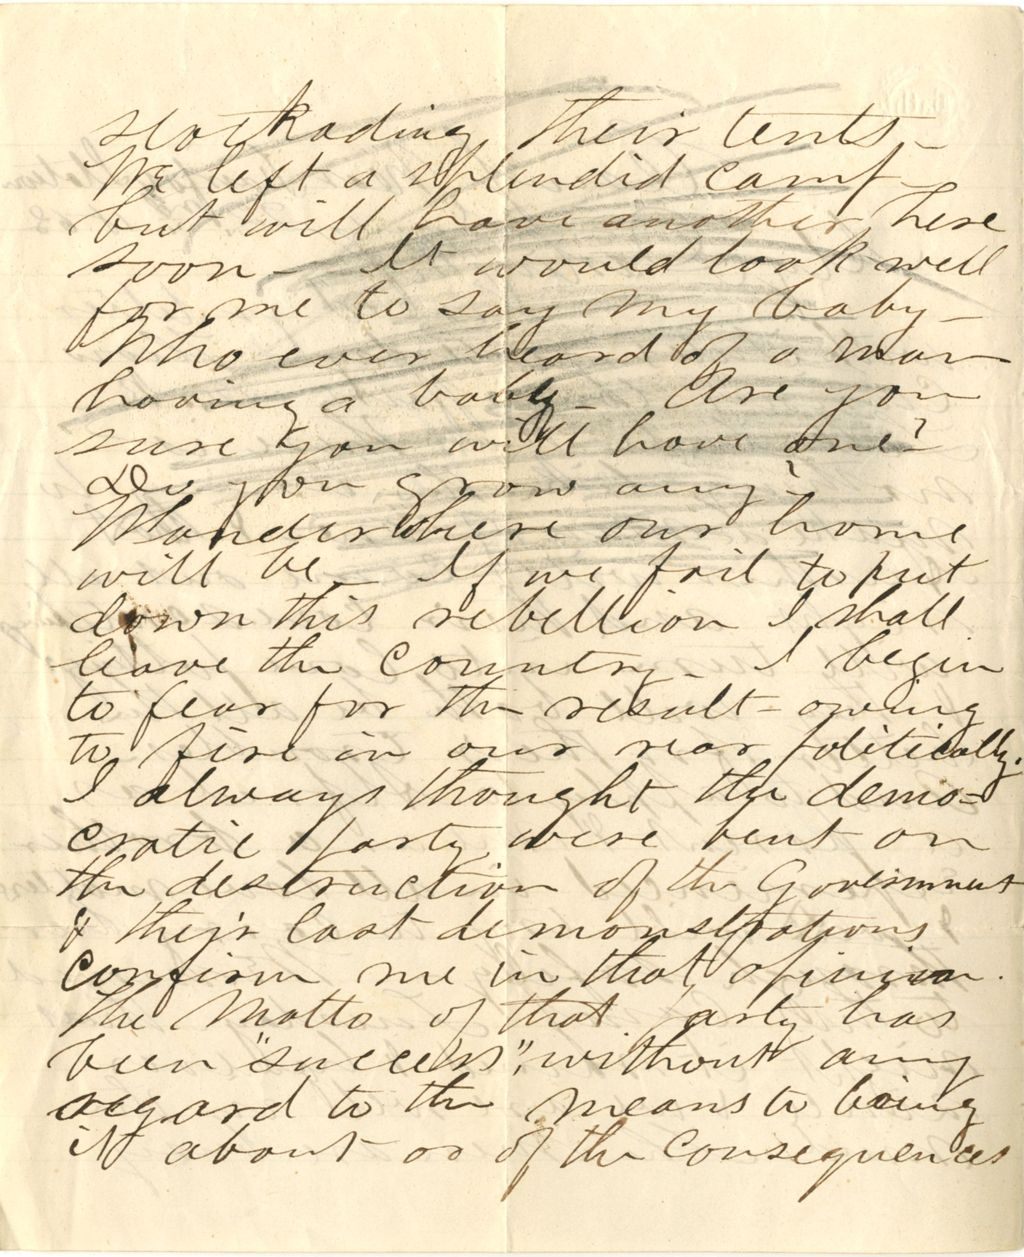 stockading their tents -
We left a splendid camp
but will have another here
soon - It would look well
for me to say my baby -
Who ever heard of a man
having a baby - Are you
sure you will have one?
Do you grow any?
Wonder where our home
will be - If we fail to put
down this rebellion I shall
leave the country - I begin
to fear for the result - owing
to fire in our rear politically.
I always thought the demo-
cratic party were bent on
the destruction of the Government
& their last demonstrations
confirm me in that opinion.
The Motto of that party has
been "success", without any
regard to the means to bring
it about or of the consequences